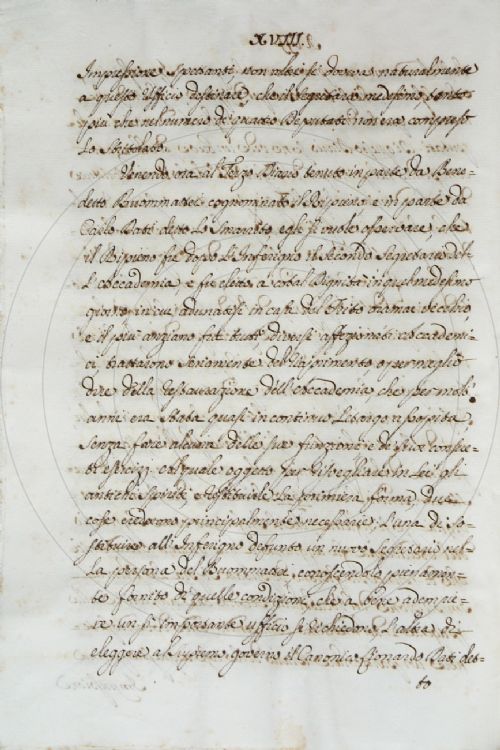 XVIIII.
Impressione Spettanti, non altri si doveva naturalmente
a questo Ufficio destinare, che il Segretario medesimo, tanto
più che nel numero di quattro Deputati non era compreso
Lo Stritolato.
Venendo ora al Terzo Diario tenuto in parte da Bene-
detto Buommattei cognominato il Ripieno e in parte da
Carlo Dati detto Lo Smarrito, egli si vuole osservare, che
il Ripieno fu dopo L'Inferigno il secondo Segretario del-
l'Accademia, e fu eletto a cotal Dignità in quel medesimo
giorno in cui adunatisi in casa del Trito oramai vecchio
e il più anziano fra tutti, diversi affezionati Accademi-
ci, trattarono Seriamente del Risorgimento o per meglio
dire della restaurazione dell'Accademia, che per molti
anni era Stata quasi in continuo Letargo assopita
Senza fare alcuna delle sue funzioni e de' suoi consue-
ti esercizj. Al quale oggetto per risvegliare in Lei gli
antichi Spiriti, e restituirle La primiera forma, due
cose credettero principalmente necessarie; L'una di So-
stituire all'Inferigno defunto un nuovo Segretario nel-
La persona del Buommattei, conoscendolo pienamen-
te fornito di quelle condizioni, che a bene adempie-
re un sì importante ufficio si richiedono; L'altra di
eleggere al Supremo governo il Canonico Lionardo Dati det-
to